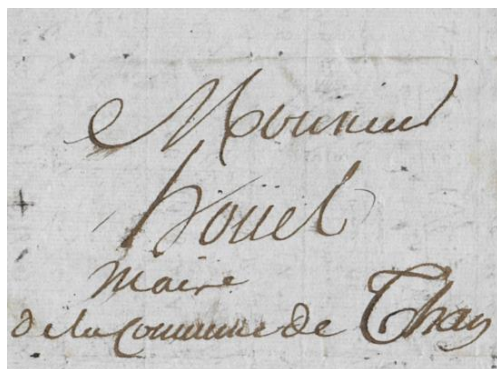 Monsieur
houel
maire
de la Commune de Than